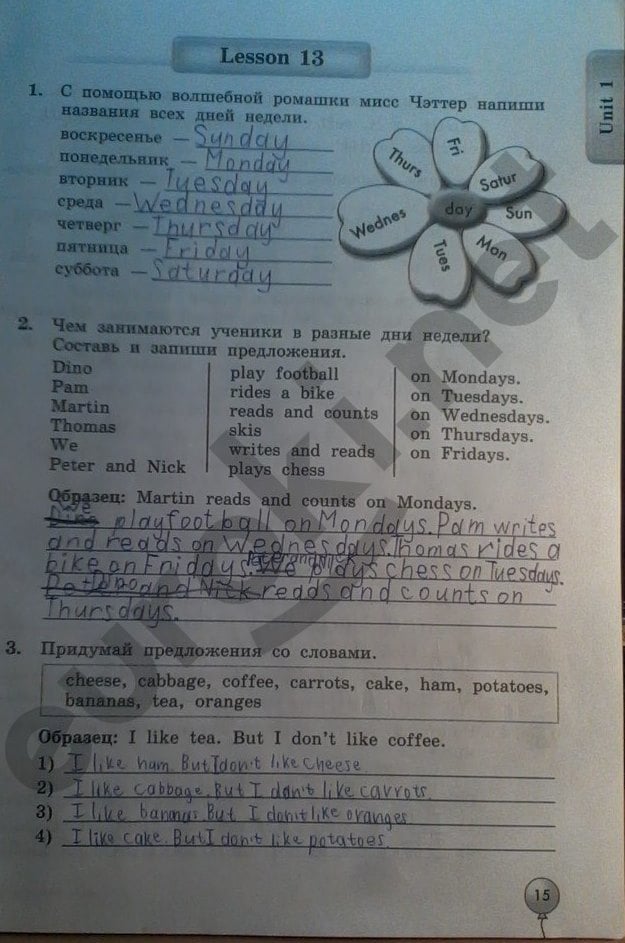 Lesson 13
Unit 1
1. С помощью волшебной ромашки мисс Чэттер напиши
названия всех дней недели.
воскресенье — Sunday
понедельник — Monday
вторник — Tuesday
среда — Wednesday
четверг — Thursday
пятница — Friday
суббота — Saturday
Fri
Thurs
Satur
Wednes
day
Sun
Tues
Mon
2. Чем занимаются ученики в разные дни недели?
Составь и запиши предложения.
Dino play football on Mondays.
Pam rides a bike on Tuesdays.
Martin reads and counts on Wednesdays.
Thomas skis on Thursdays.
We writes and reads on Fridays.
Peter and Nick plays chess
Образец: Martin reads and counts on Mondays.
We
Dino play football on Mondays. Pam writes
and reads on Wednesdays. Thomas rides a
Peter and Nick
bike on Fridays. We plays chess on Tuesdays.
Dino
Peter and Nick reads and counts on
Thursdays.
3. Придумай предложения со словами.
cheese, cabbage, coffee, carrots, cake, ham, potatoes,
bananas, tea, oranges
Образец: I like tea. But I don't like coffee.
1) I like ham. But I don't like cheese.
2) I like cabbage. But I don't like carrots.
3) I like bannas. But I don't like oranges.
4) I like cake. But I don't like potatoes.
15
euroki.net